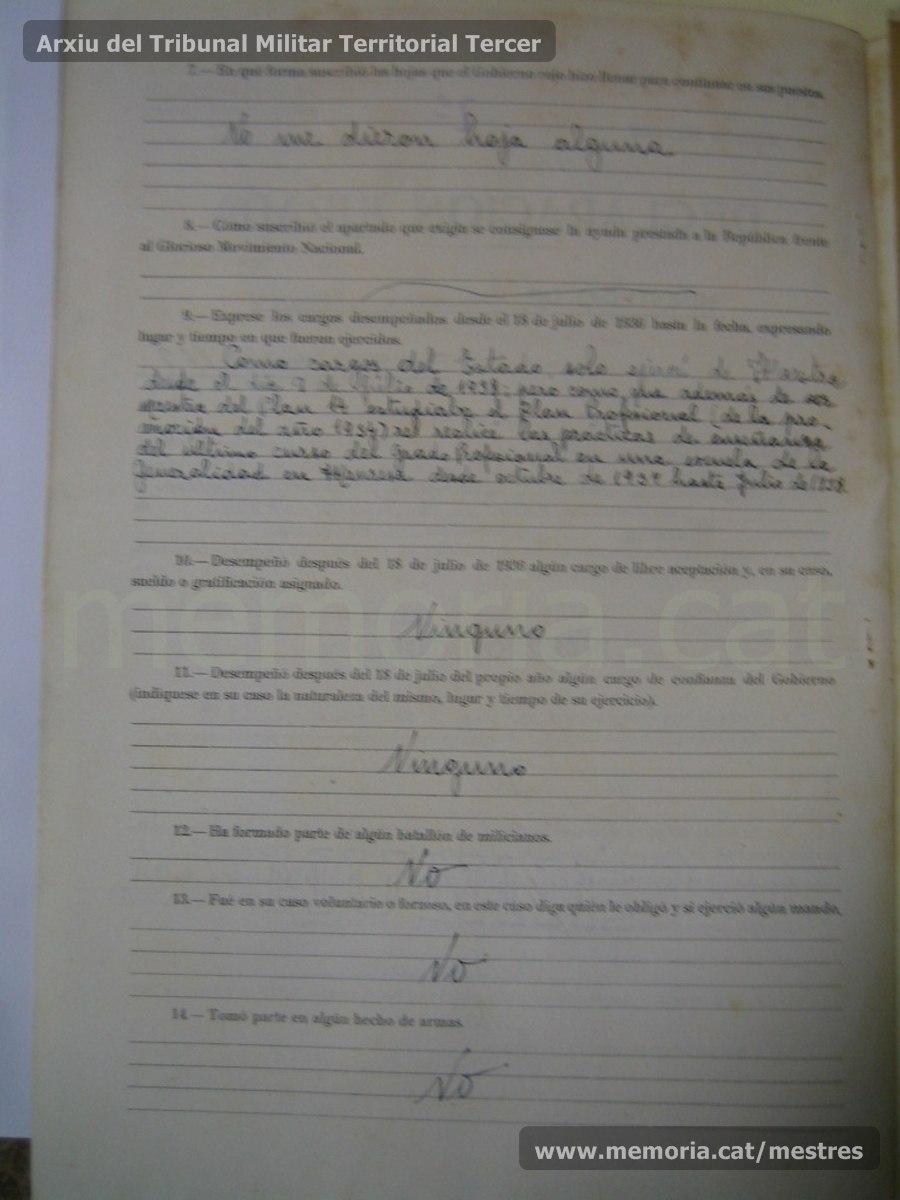 Arxiu del Tribunal Militar Territorial Tercer
7.— En qué forma suscribió las hojas que el Gobierno rojo hizo llenar para continuar en sus puestos.
No me dieron hoja alguna.
8.— Cómo suscribió el apartado que exigía se consignase la ayuda prestada a la República frente
al Glorioso Movimiento Nacional.
9.— Exprese los cargos desempeñados desde el 18 de julio de 1936 hasta la fecha, expresando
lugar y tiempo en que fueron ejercidos.
Como cargos del Estado, solo ejercí de Maestra
desde el día de de 1938; pero como que además de ser
maestra del Plan 14 estudiaba el Plan Profesional (de la pro-
moción del año 1934) realicé las prácticas de enseñanza
del último curso del Grado Profesional en una escuela de la
Generalidad en Manresa desde octubre de hasta Julio de 1938.
10.— Desempeñó después del 18 de julio de 1936 algún cargo de libre aceptación y, en su caso,
sueldo o gratificación asignado.
Ninguno
memoria.cat
11.— Desempeñó después del 18 de julio del propio año algún cargo de confianza del Gobierno
(indíquese en su caso la naturaleza del mismo, lugar y tiempo de su ejercicio).
Ninguno
12.— Ha formado parte de algún batallón de milicianos.
No
13.— Fué en su caso voluntario o forzoso, en este caso diga quién le obligó y si ejerció algún mando.
No
14.— Tomó parte en algún hecho de armas.
No
www.memoria.cat/mestres